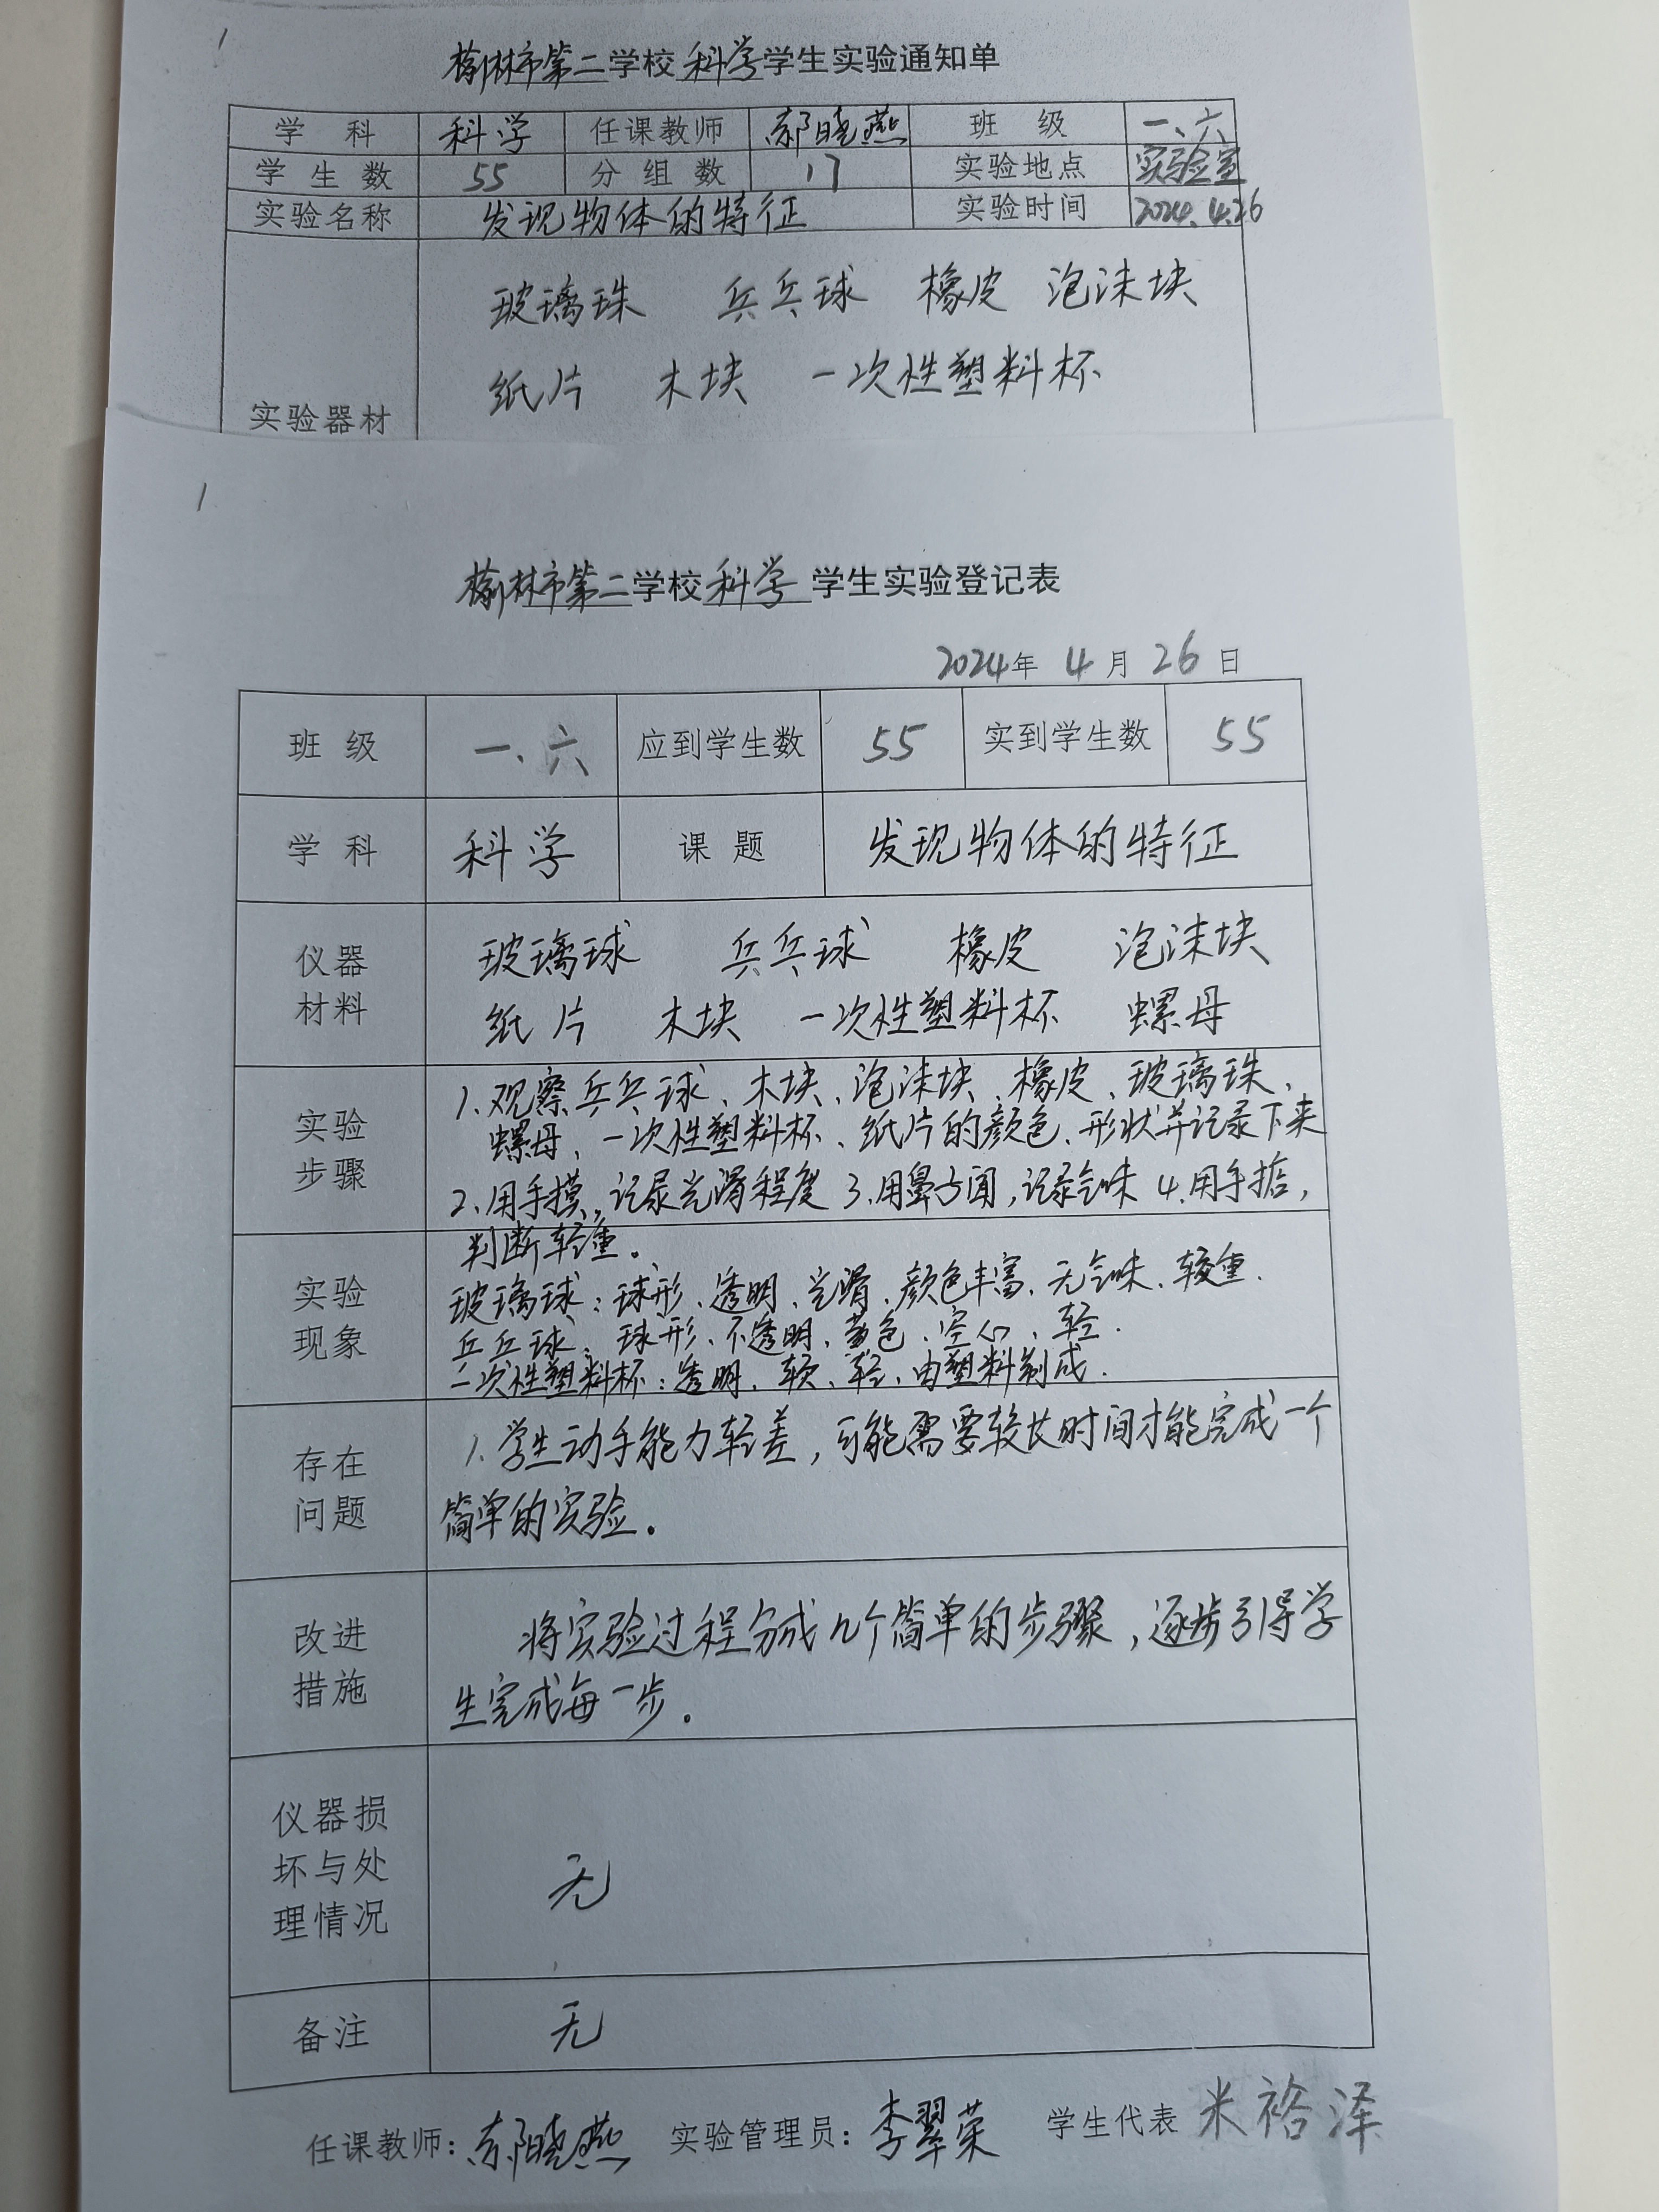 1
榆林市第二学校 科学学生实验通知单
学 科 科学 任课教师 郝晓燕 班 级 一、六
学生数 55 分组数 17 实验地点 实验室
实验名称 发现物体的特征 实验时间 2024.4.26
玻璃珠 乒乓球 橡皮 泡沫块
纸片 木块 一次性塑料杯
实验器材
1
榆林市第二学校科学 学生实验登记表
2024年 4 月 26 日
班 级 一、六 应到学生数 55 实到学生数 55
学 科 科学 课 题 发现物体的特征
仪器
材料
玻璃球 乒乓球 橡皮 泡沫块
纸片 木块 一次性塑料杯 螺母
实验
步骤
1.观察乒乓球、木块、泡沫块、橡皮、玻璃珠、
螺母、一次性塑料杯、纸片的颜色、形状并记录下来
2.用手摸,记录光滑程度 3.用鼻子闻,记录气味 4.用手掂,
判断轻重。
实验
现象
玻璃球:球形、透明、光滑、颜色丰富、无气味、较重.
乒乓球:球形、不透明、黄色、空心、轻.
一次性塑料杯:透明、软、轻、由塑料制成.
存在
问题
1.学生动手能力较差,可能需要较长时间才能完成一个
简单的实验。
改进
措施
将实验过程分成几个简单的步骤,逐步引导学
生完成每一步。
仪器损
坏与处
理情况
无
备注 无
任课教师:郝晓燕 实验管理员:李翠荣 学生代表 米裕泽